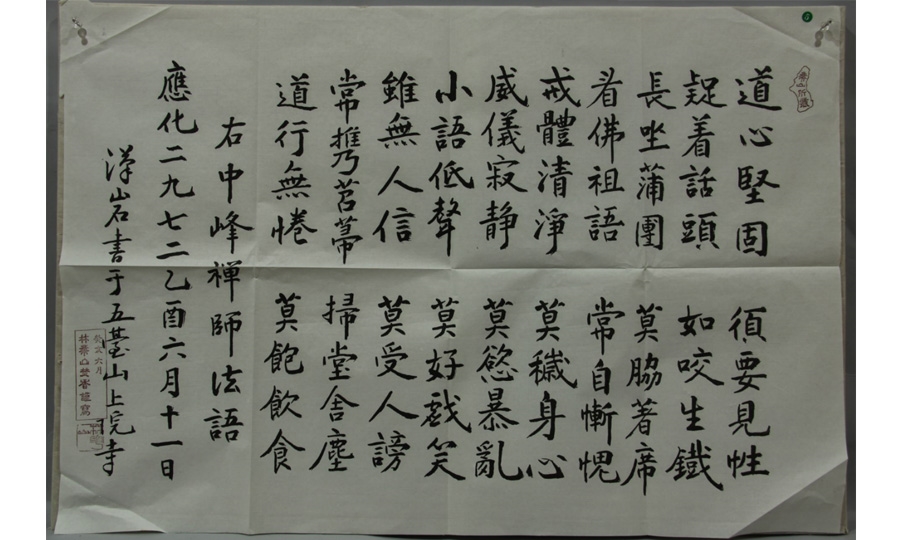 道心堅固 須要見性
疑着話頭 如咬生鐵
長坐蒲團 莫脇著席
看佛祖語 常自慚愧
戒體清淨 莫穢身心
威儀寂静 莫慾暴亂
小語低聲 莫好戲笑
雖無人信 莫受人謗
常携苕菷 掃堂舍塵
道行無惓 莫飽飲食
右中峰禪師法語
應化二九七二乙酉六月十一日
漢岩書于五臺山上院寺